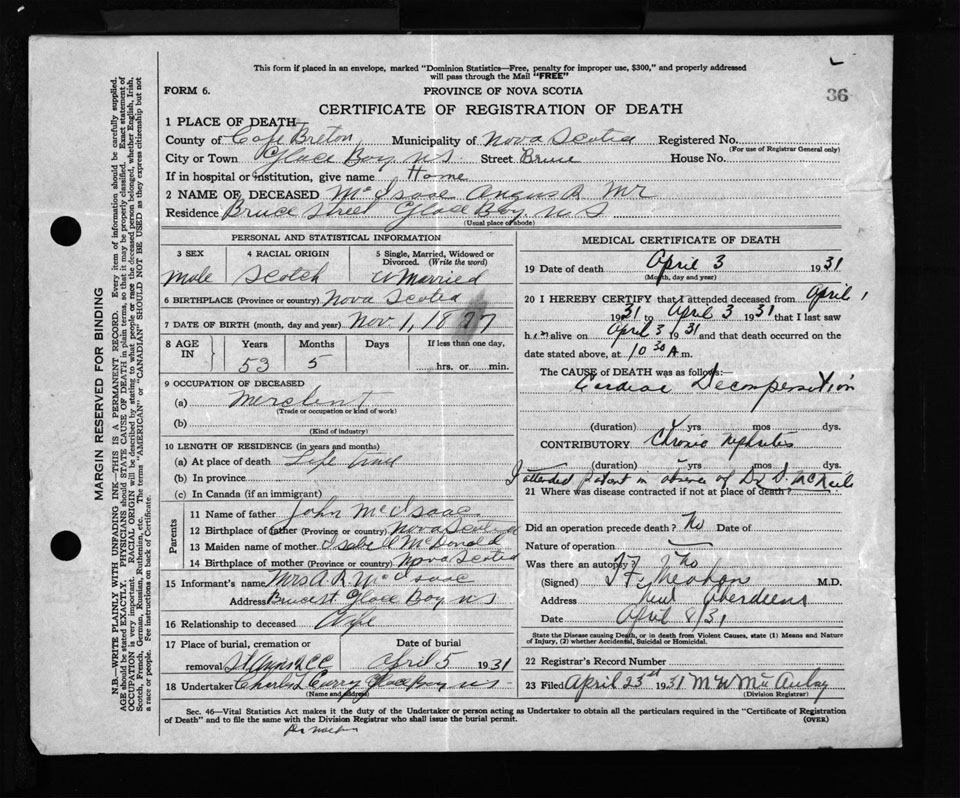 This form if placed in an envelope, marked "Dominion Statistics—Free, penalty for improper use, $300," and properly addressed
will pass through the Mail "FREE"
FORM 6.
PROVINCE OF NOVA SCOTIA
36
CERTIFICATE OF REGISTRATION OF DEATH
1 PLACE OF DEATH
County of Cape Breton Municipality of Nova Scotia Registered No.
(For use of Registrar General only)
City or Town Glace Bay N S Street Bruce House No.
If in hospital or institution, give name Home
2 NAME OF DECEASED McIsaac Angus R Mr
Residence Bruce Street Glace Bay N S
(Usual place of abode)
PERSONAL AND STATISTICAL INFORMATION
3 SEX 4 RACIAL ORIGIN 5 Single, Married, Widowed or Divorced. (Write the word)
Male Scotch Married
6 BIRTHPLACE (Province or country) Nova Scotia
7 DATE OF BIRTH (month, day and year) Nov 1, 1877
8 AGE IN Years Months Days If less than one day,
53 5 hrs. or min.
9 OCCUPATION OF DECEASED
(a) Merchent
(Trade or occupation or kind of work)
(b)
(Kind of industry)
10 LENGTH OF RESIDENCE (in years and months)
(a) At place of death Life time
(b) In province
(c) In Canada (if an immigrant)
Parents
11 Name of father John McIsaac
12 Birthplace of father (Province or country) Nova Scotia
13 Maiden name of mother Isabell McDonald
14 Birthplace of mother (Province or country) Nova Scotia
15 Informant's name Mrs A. R. McIsaac
Address Bruce St Glace Bay N S
16 Relationship to deceased Wife
17 Place of burial, cremation or removal Date of burial
St Anns CC April 5 1931
18 Undertaker Charles L Curry Glace Bay N S
(Name and address)
MEDICAL CERTIFICATE OF DEATH
19 Date of death April 3 1931
(Month, day and year)
20 I HEREBY CERTIFY that I attended deceased from April 1
1931 to April 3 1931 that I last saw
h im alive on April 3 1931 and that death occurred on the
date stated above, at 10 30 A m.
The CAUSE of DEATH was as follows:—
Cardiac Decompensation
(duration) yrs mos dys.
CONTRIBUTORY Chronic Nephritis
(duration) yrs mos dys.
I attended patient in absence of Dr D. McNeil
21 Where was disease contracted if not at place of death?
Did an operation precede death? No Date of
Nature of operation
Was there an autopsy? No
(Signed) M.D.
Address New Aberdeen
Date April 8/31
State the Disease causing Death, or in death from Violent Causes, state (1) Means and Nature of Injury, (2) whether Accidental, Suicidal or Homicidal.
22 Registrar's Record Number
23 Filed April 23rd 1931 M W McAulay
(Division Registrar)
Sec. 46—Vital Statistics Act makes it the duty of the Undertaker or person acting as Undertaker to obtain all the particulars required in the "Certificate of Registration
of Death" and to file the same with the Division Registrar who shall issue the burial permit.
(OVER)
MARGIN RESERVED FOR BINDING
N.B.—WRITE PLAINLY WITH UNFADING INK—THIS IS A PERMANENT RECORD. Every item of information should be carefully supplied.
AGE should be stated EXACTLY. PHYSICIANS should STATE CAUSE OF DEATH in plain terms, so that it may be properly classified. Exact statement of
OCCUPATION is very important. RACIAL ORIGIN will be described by stating to what people or race the deceased person belonged, whether English, Irish,
Scotch, French, German, Russian, Ruthenian, etc. The terms "AMERICAN" or "CANADIAN" SHOULD NOT BE USED as they express citizenship but not
a race or people. See instructions on back of Certificate.